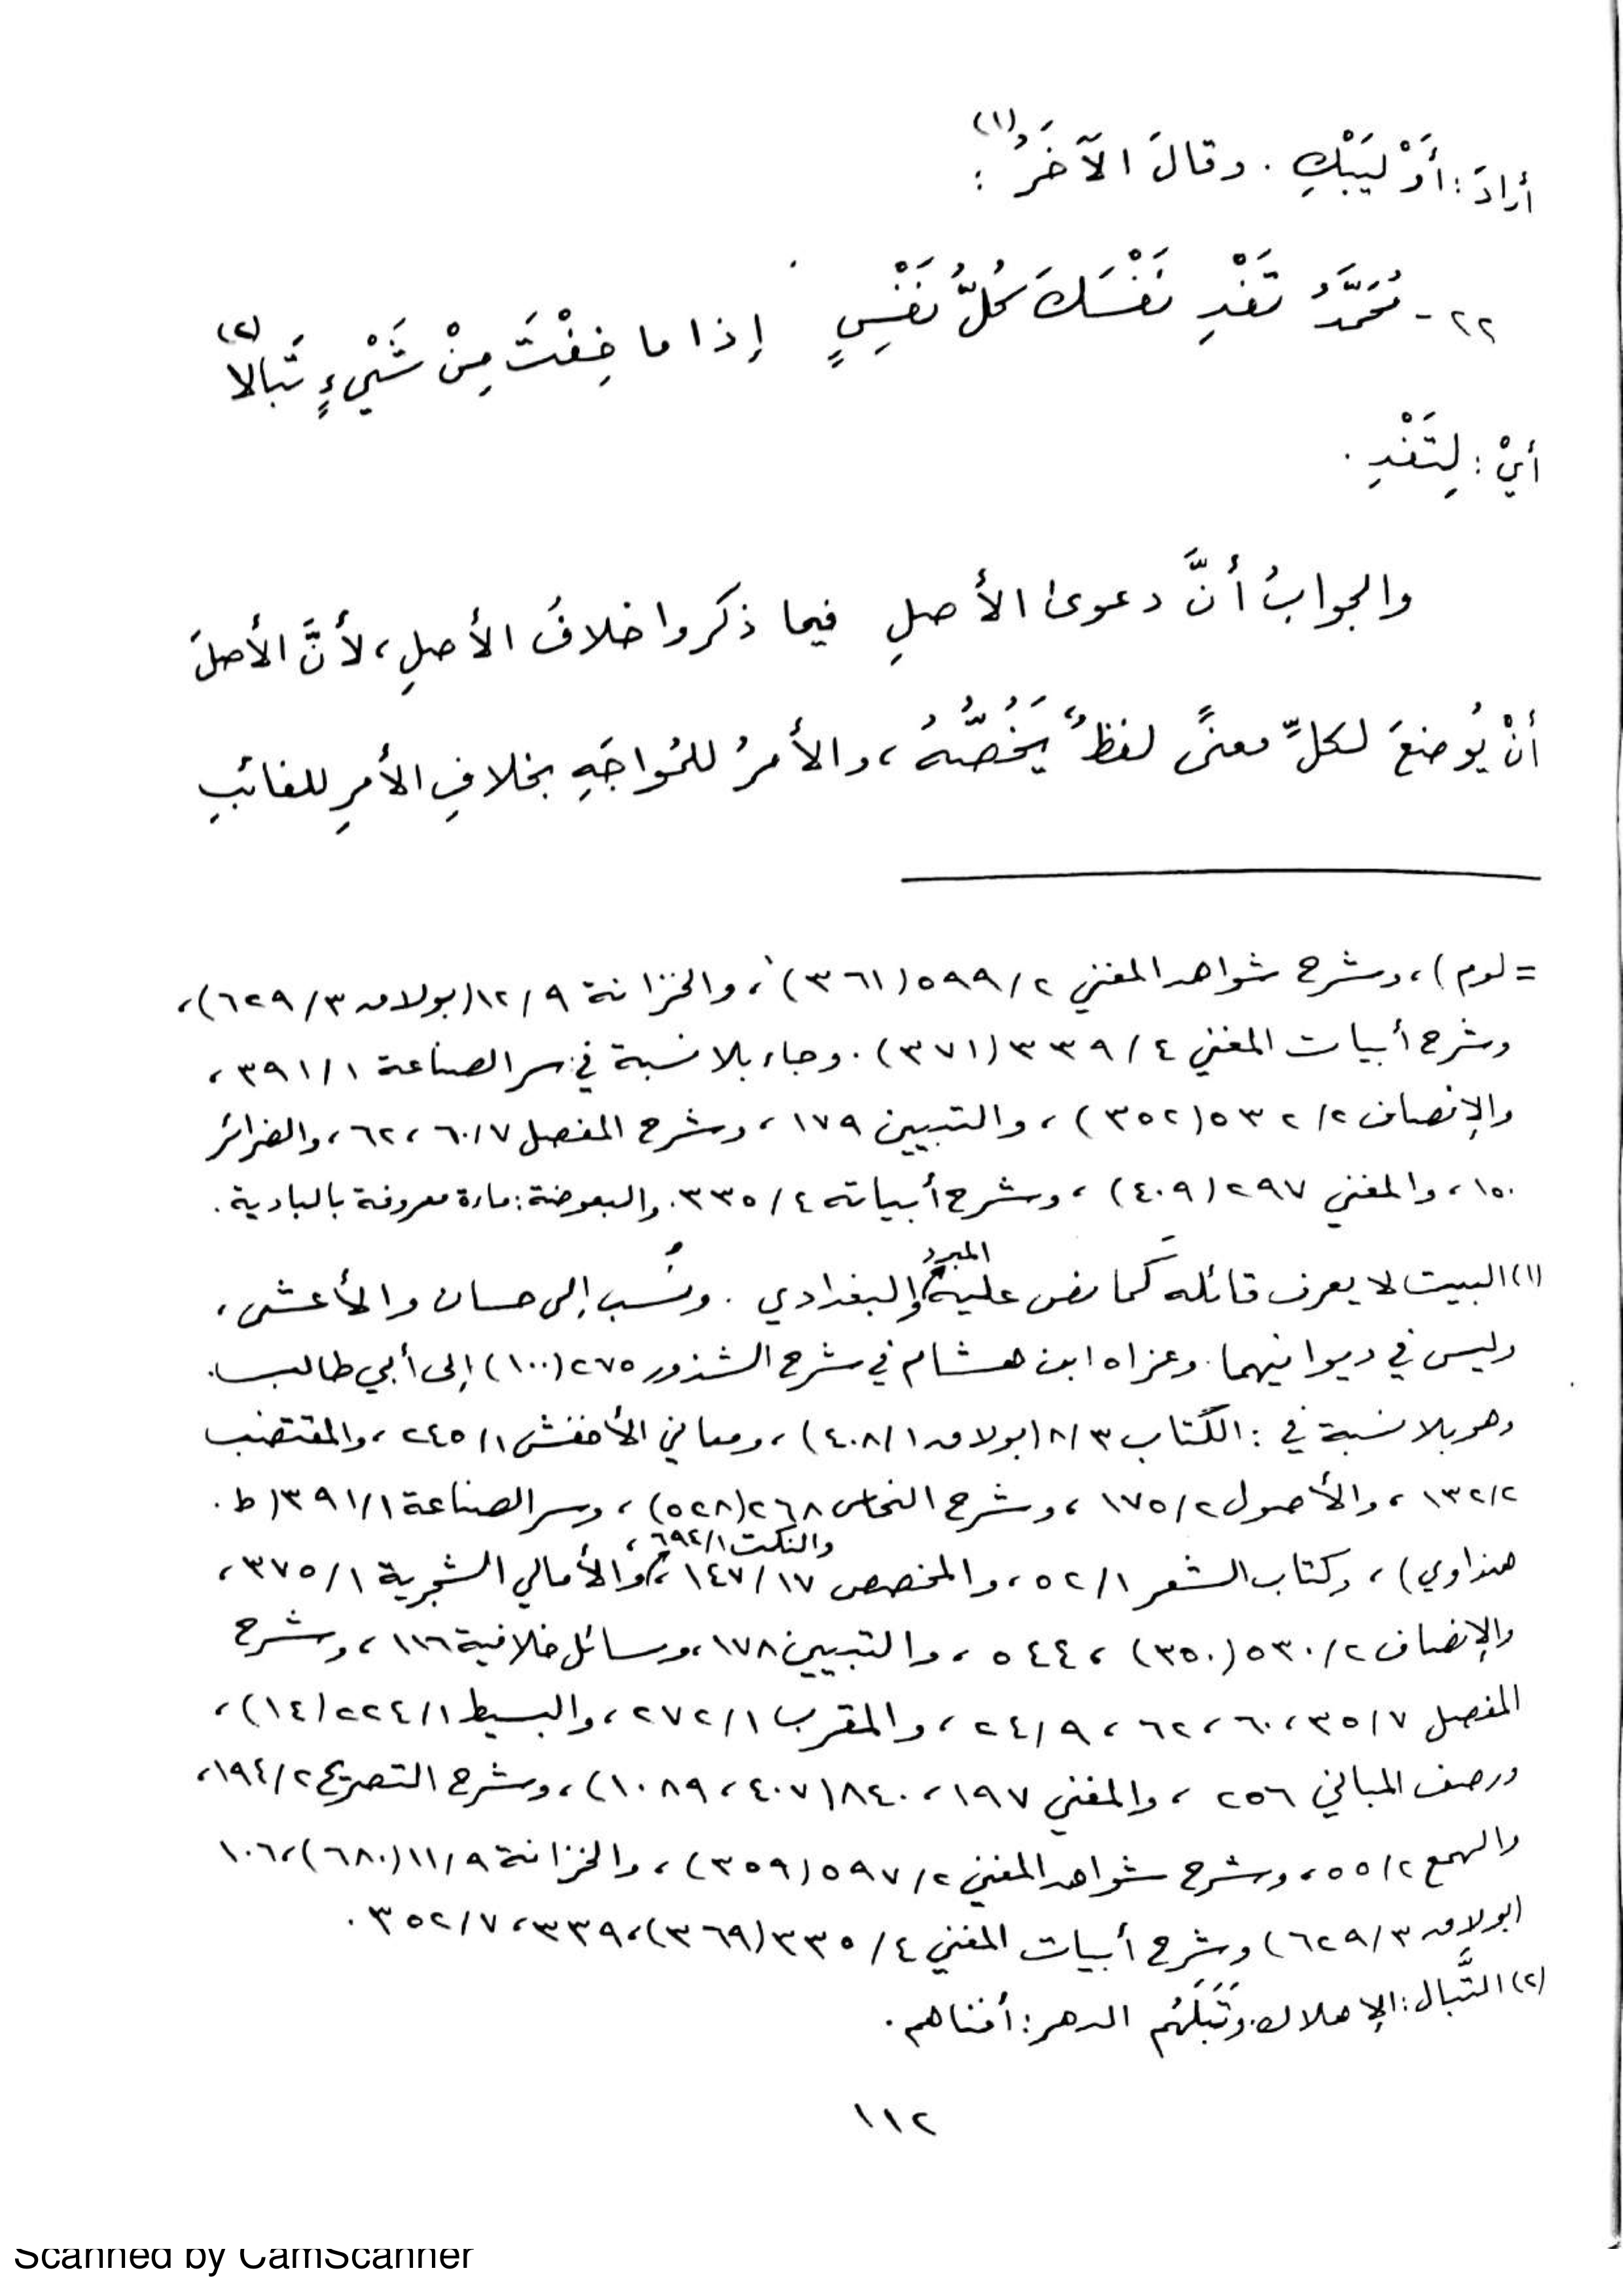 أرادَ : أَوْ لِيَبْكِ . وقالَ الآخَرُ(١) :
٢٢ - مُحَمَّدُ تَفْدِ نَفْسَكَ كُلُّ نَفْسٍ إذا ما خِفْتَ مِنْ شَيْءٍ تَبالا(٢)
أيْ : لِتَفْدِ .
والجوابُ أنَّ دعوى الأصلِ فيما ذكروا خلافُ الأصلِ ، لأنَّ الأصلَ
أنْ يُوضعَ لكلِّ معنًى لفظٌ يَخُصُّهُ ، والأمرُ للمُواجَهِ بخلافِ الأمرِ للغائبِ
= لوم ) ، وشرح شواهد المغني ٢ / ٥٩٩ (٣٦١) ، والخزانة ٩ / ١٢ (بولاق ٣ / ٦٢٩) ،
وشرح أبيات المغني ٤ / ٣٣٩ (٣٧١) . وجاء بلا نسبة في : سر الصناعة ١ / ٣٩١ ،
والإنصاف ٢ / ٥٣٢ (٣٥٢) ، والتبيين ١٧٩ ، وشرح المفصل ٧ / ٦٠ ، ٦٢ ، والضرائر
١٥٠ ، والمغني ٢٩٧ (٤٠٩) ، وشرح أبياته ٤ / ٣٣٥ . والبعوضة : ماءة معروفة بالبادية .
(١) البيت لا يعرف قائله كما نص عليه المبرد والبغدادي . ونُسب إلى حسان والأعشى ،
وليس في ديوانيهما . وعزاه ابن هشام في شرح الشذور ٢٧٥ (١٠٠) إلى أبي طالب .
وهو بلا نسبة في : الكتاب ٣ / ٨ (بولاق ١ / ٤٠٨) ، ومعاني الأخفش ١ / ٢٤٥ ، والمقتضب
٢ / ١٣٢ ، والأصول ٢ / ١٧٥ ، وشرح النحاس ٢٦٨ (٥٢٨) ، وسر الصناعة ١ / ٣٩١ (ط .
هنداوي) ، وكتاب الشعر ١ / ٥٢ ، والمخصص ١٧ / ١٤٧ ، والنكت ١ / ٦٩٤ ، والأمالي الشجرية ١ / ٣٧٥ ،
والإنصاف ٢ / ٥٣٠ (٣٥٠) ، ٥٤٤ ، والتبيين ١٧٨ ، ومسائل خلافية ١١٦ ، وشرح
المفصل ٧ / ٣٥ ، ٦٠ ، ٦٢ ، ٩ / ٢٤ ، والمقرب ١ / ٢٧٢ ، والبسيط ١ / ٢٢٤ (١٤) ،
ورصف المباني ٢٥٦ ، والمغني ١٩٧ ، ٨٤٠ (٤٠٧ ، ١٠٨٩) ، وشرح التصريح ٢ / ١٩٤ ،
والهمع ٢ / ٥٥ ، وشرح شواهد المغني ٢ / ٥٩٧ (٣٥٩) ، والخزانة ٩ / ١١ (٦٨٠) ، ١٠٦
(بولاق ٣ / ٦٢٩) وشرح أبيات المغني ٤ / ٣٣٥ (٣٦٩) ، ٣٣٩ ، ٧ / ٣٥٢ .
(٢) التَّبال : الإهلاك . وتَبَلَهُم الدهر : أفناهم .
١١٢
Scanned by CamScanner